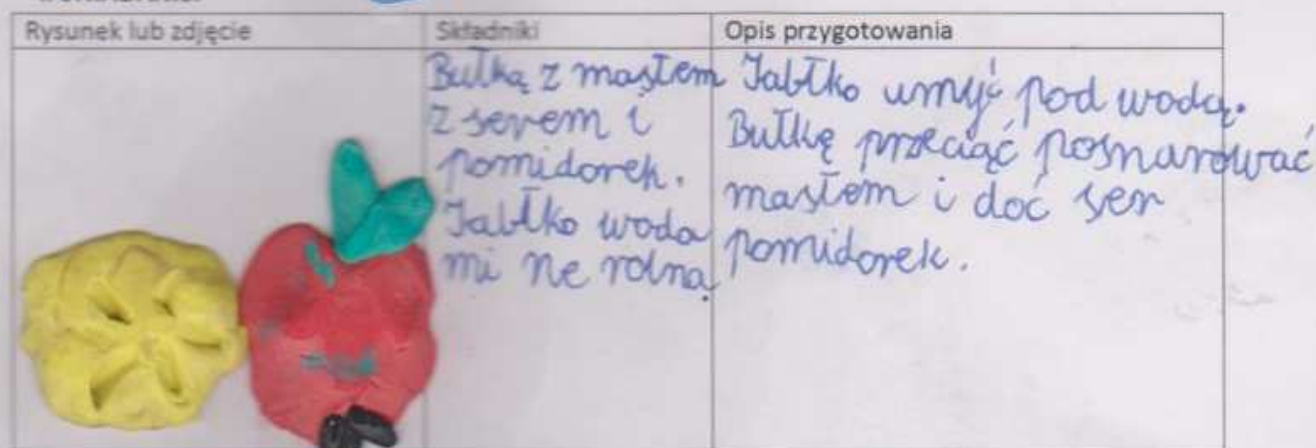 Rysunek lub zdjęcie
Składniki
Opis przygotowania
Bułką z masłem
z serem i
pomidorek.
Jabłko woda
mi ne rolną
Jabłko umyć pod wodą.
Bułkę przeciąć posmarować
masłem i doć ser
pomidorek.